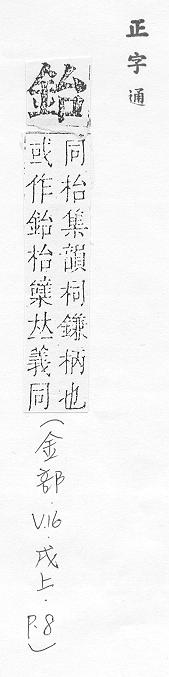 正字通
鈶
同枱集韻柌鎌柄也
或作鈶枱𠀤義同
(金部.V.16.戌上.P.8)